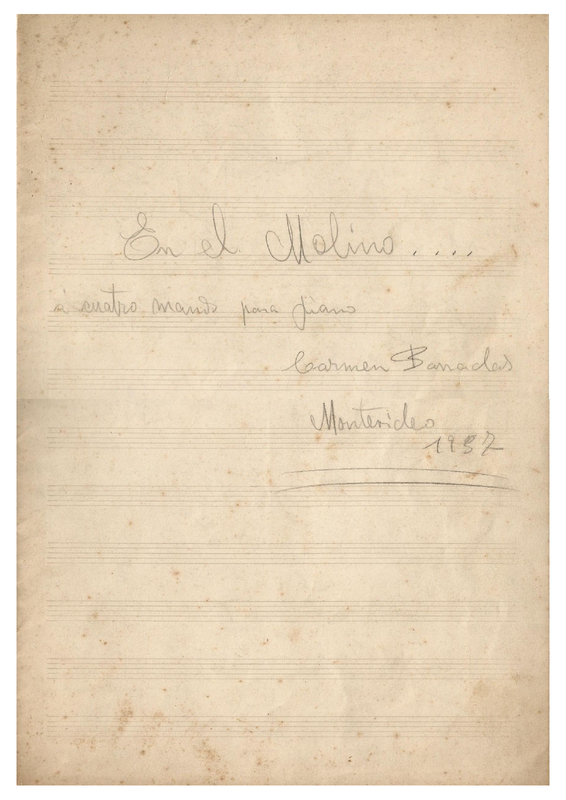 En el Molino . . . .
a cuatro manos para piano
Carmen Barradas
Montevideo
1937